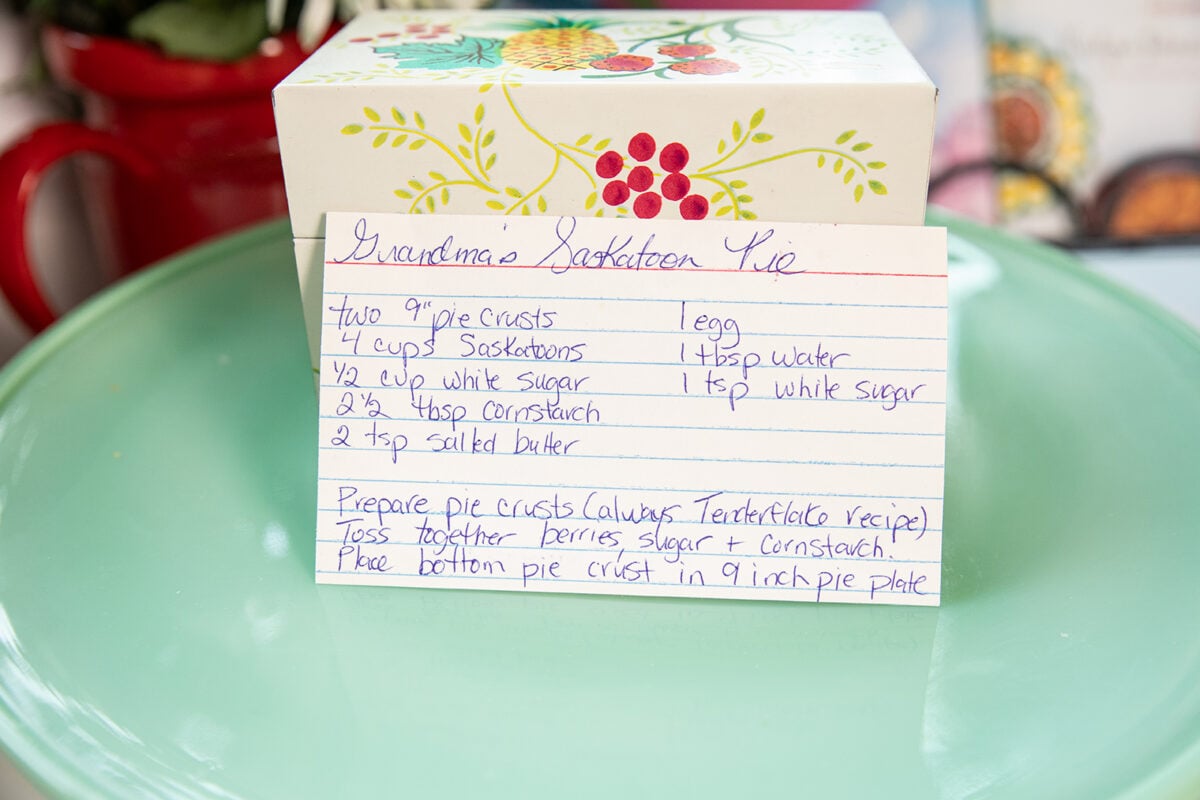 Grandma's Saskatoon Pie
two 9" pie crusts
4 cups Saskatoons
½ cup white sugar
2 ½ tbsp cornstarch
2 tsp salted butter
1 egg
1 tbsp water
1 tsp white sugar
Prepare pie crusts (always Tenderflake recipe)
Toss together berries, sugar + cornstarch.
Place bottom pie crust in 9 inch pie plate